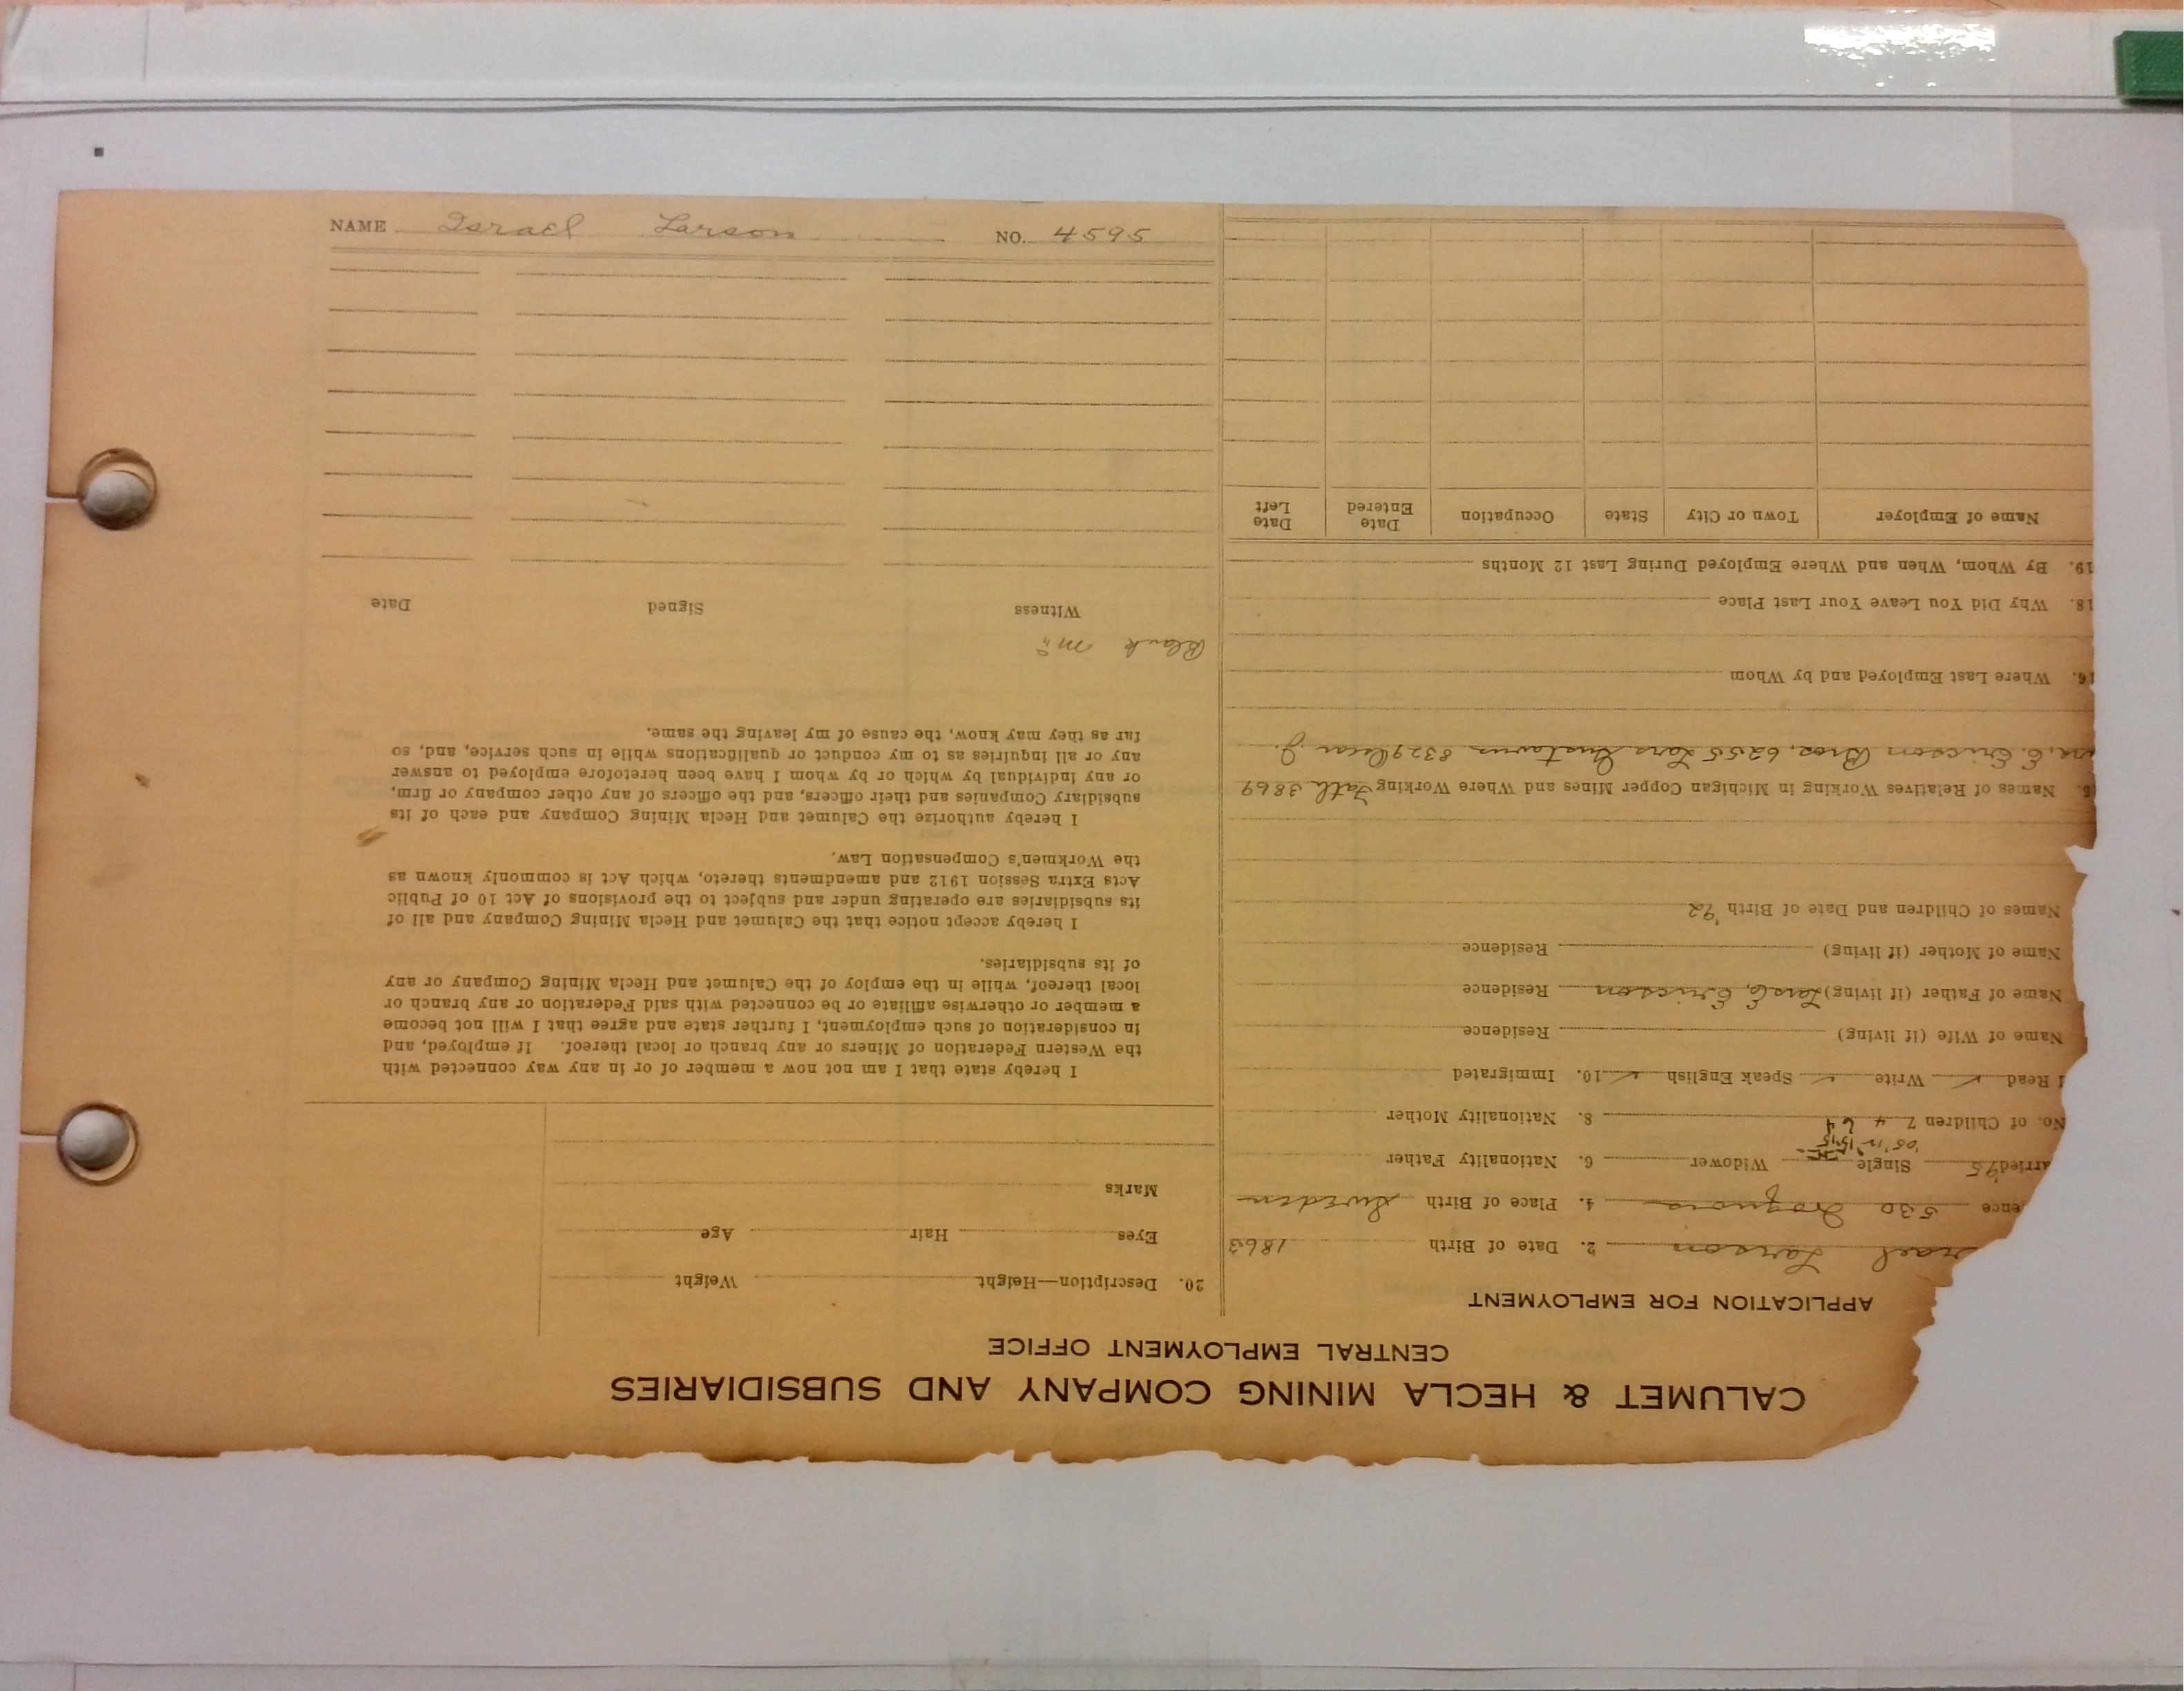 NAME Israel Larson NO. 4595
CALUMET & HECLA MINING COMPANY AND SUBSIDIARIES
CENTRAL EMPLOYMENT OFFICE
APPLICATION FOR EMPLOYMENT
rael Larson 2. Date of Birth 1863
ence 530 4. Place of Birth Sweden
arried '95 Single Widower 6. Nationality Father
'05 '12 1915
No. of Children 7 4 6 4 8. Nationality Mother
I Read ✓ Write ✓ Speak English ✓ 10. Immigrated
Name of Wife (if living) Residence
Name of Father (if living) Lars E. Ericson Residence
Name of Mother (if living) Residence
Names of Children and Date of Birth '92
5. Names of Relatives Working in Michigan Copper Mines and Where Working Fath 3869
E. Ericson Bros. 6255 Lars Gustavus 8329 Oscar J.
16. Where Last Employed and by Whom
18. Why Did You Leave Your Last Place
19. By Whom, When and Where Employed During Last 12 Months
Name of Employer Town or City State Occupation Date Entered Date Left
20. Description—Height Weight
Eyes Hair Age
Marks
I hereby state that I am not now a member of or in any way connected with
the Western Federation of Miners or any branch or local thereof. If employed, and
in consideration of such employment, I further state and agree that I will not become
a member or otherwise affiliate or be connected with said Federation or any branch or
local thereof, while in the employ of the Calumet and Hecla Mining Company or any
of its subsidiaries.
I hereby accept notice that the Calumet and Hecla Mining Company and all of
its subsidiaries are operating under and subject to the provisions of Act 10 of Public
Acts Extra Session 1912 and amendments thereto, which Act is commonly known as
the Workmen's Compensation Law.
I hereby authorize the Calumet and Hecla Mining Company and each of its
subsidiary Companies and their officers, and the officers of any other company or firm,
or any individual by which or by whom I have been heretofore employed to answer
any or all inquiries as to my conduct or qualifications while in such service, and, so
far as they may know, the cause of my leaving the same.
Blank
Witness Signed Date